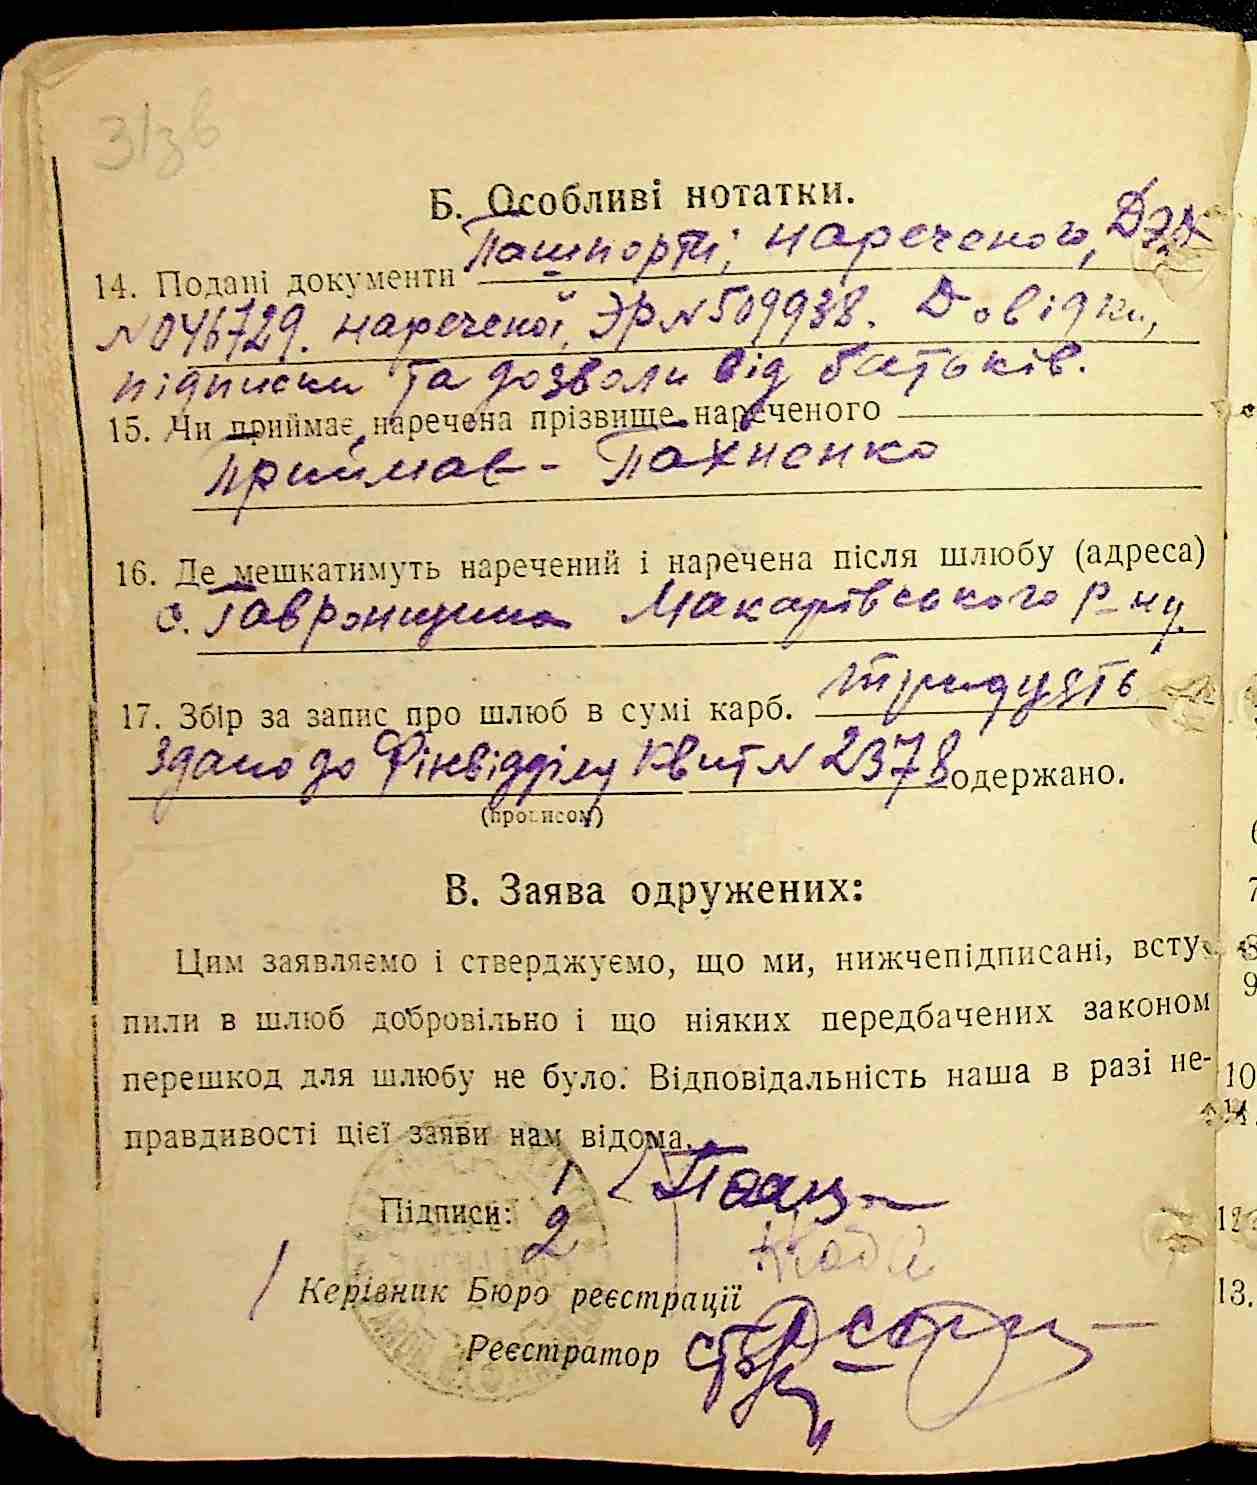 Б. Особливі нотатки.
14. Подані документи Пашпорті, нареченого, ДЭД
№046729. нареченої, ЭР№509938. Довідки,
підписки та дозволи від батьків.
15. Чи приймає наречена прізвище нареченого
Приймає - Пахненко
16. Де мешкатимуть наречений і наречена після шлюбу (адреса)
с. Гавронщина Макарівського р-ну
17. Збір за запис про шлюб в сумі карб. тридцять
Здано до Фінвідділу Квит№ 2378 одержано.
(прописом)
В. Заява одружених:
Цим заявляємо і стверджуємо, що ми, нижчепідписані, всту-
пили в шлюб добровільно і що ніяких передбачених законом
перешкод для шлюбу не було. Відповідальність наша в разі не-
правдивості цієї заяви нам відома.
1
Підписи:
2
Керівник Бюро реєстрації
Реєстратор
7
8
9
10
11.
12
13.